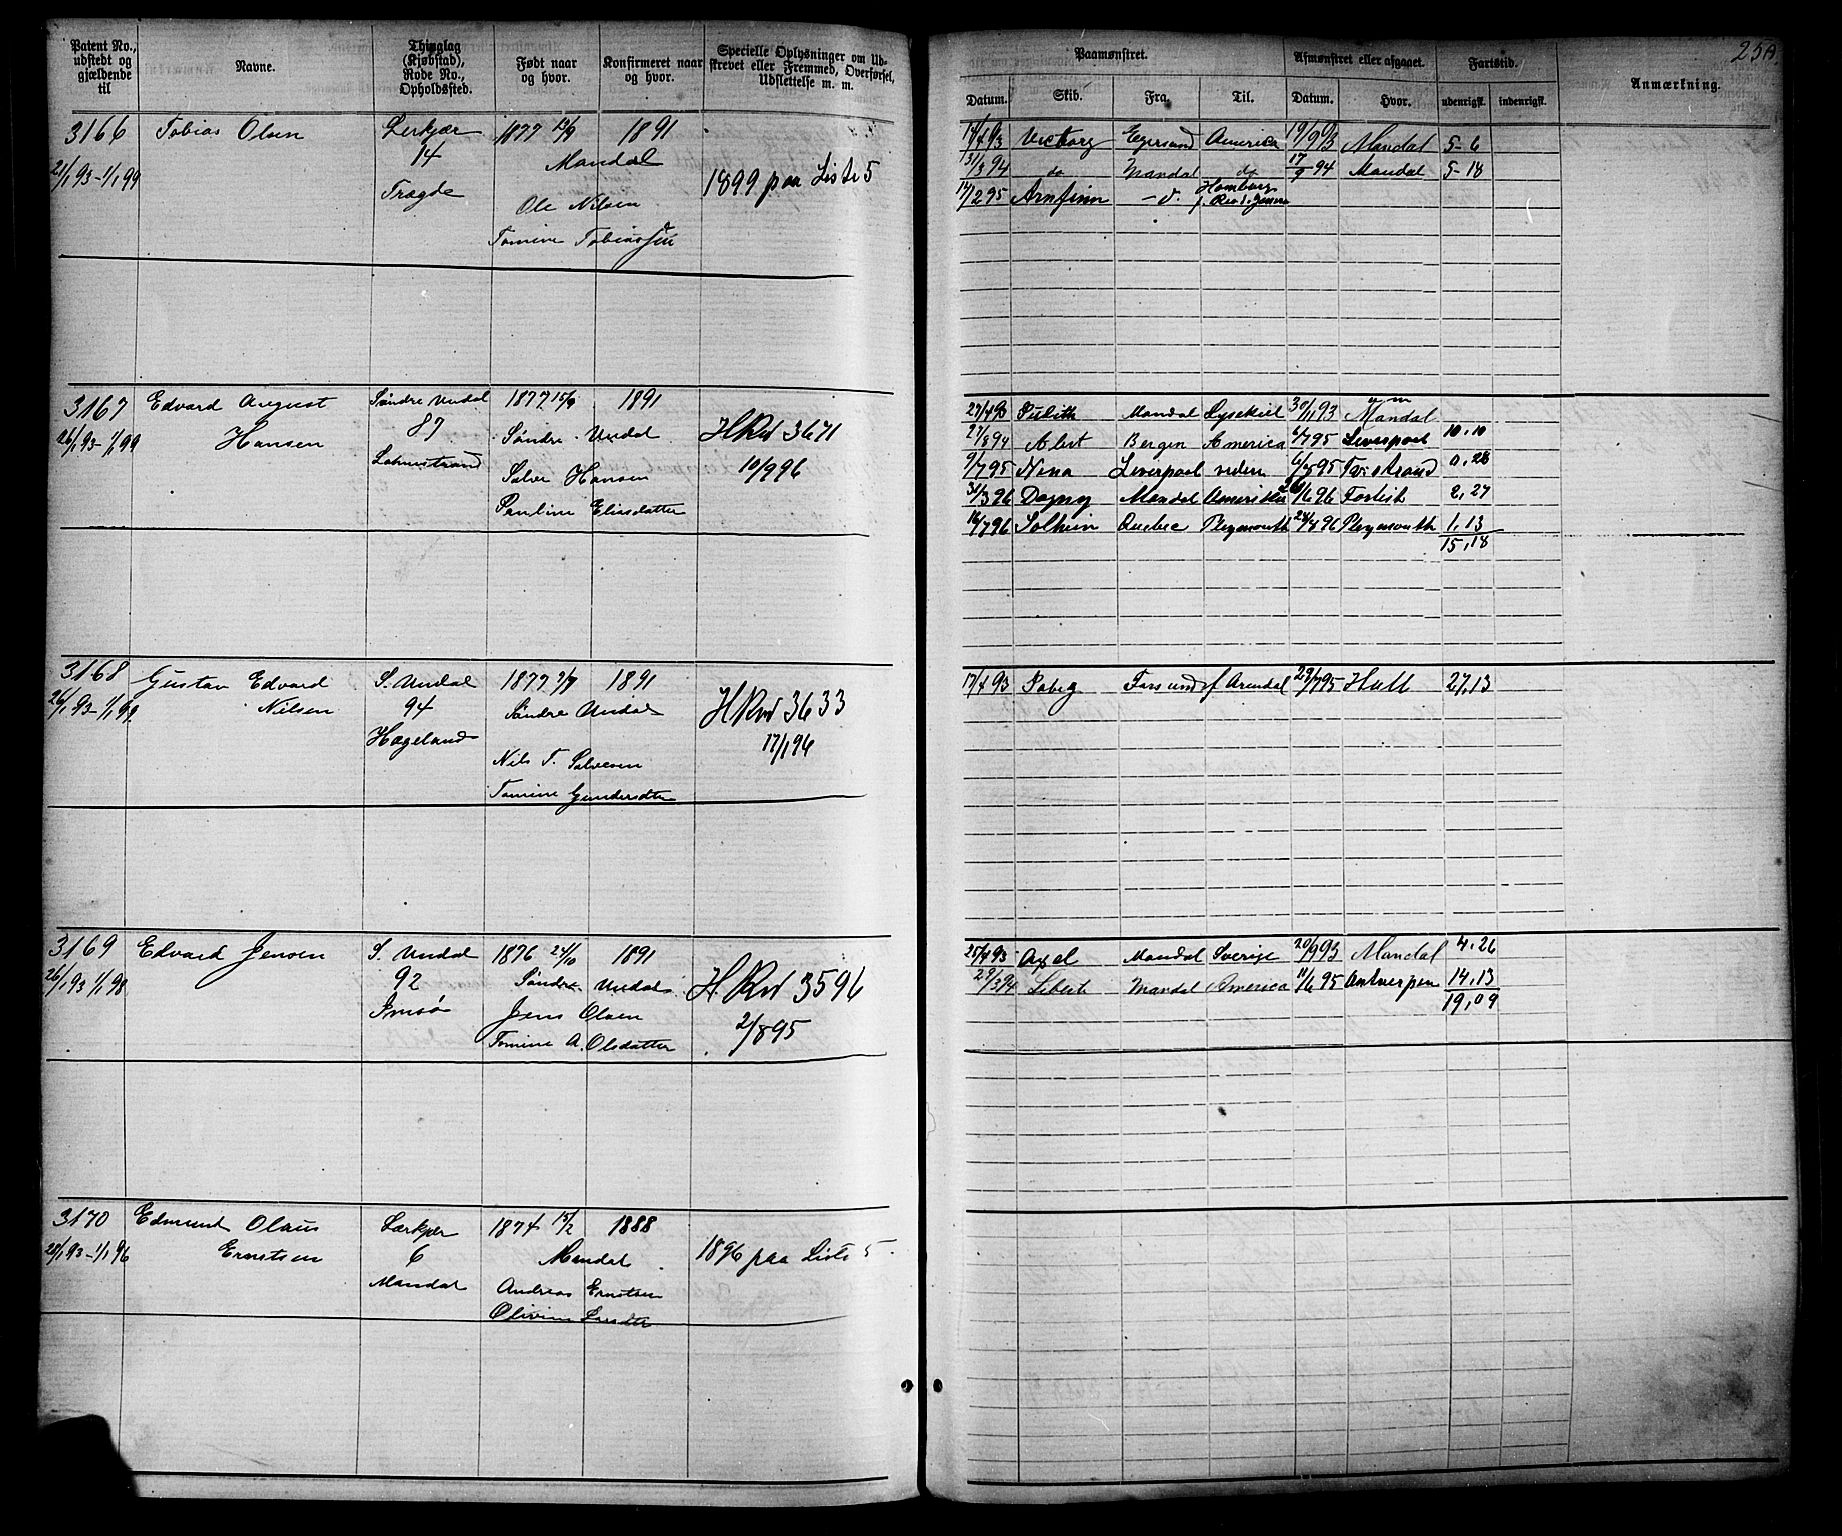 Patent No., udstedt og gjældende til
Navne.
Thinglag (Kjøbstad), Rode No., Opholdssted.
Født naar og hvor.
Konfirmeret naar og hvor.
Specielle Oplysninger om Udskrevet eller Fremmed, Overførsel, Udslettelse m. m.
Paamønstret.
Afmønstret eller afgaaet.
Fartstid.
Anmærkning.
Datum.
Skib.
Fra.
Til.
Datum.
Hvor.
udenrigsk.
indenrigsk.
3166 Tobias Olsen
21/1 93-1/1 99
14
Tragde
1877 13/9 1891
Mandal
Ole Nilsen
Tomine Tobiassen
1899 paa Liste 5
14/4 93 Victory Egersund America 19/9 93 Mandal 5-6
31/3 94 do Mandal do 17/9 94 Mandal 5-18
14/2 95 Arnfinn
3167 Edvard August
26/1 93-1/1 99 Hansen
Søndre Undal
87
1877 15/9 1891
Søndre Undal
Salve Hansen
Pauline Eliasdatter
H Rul 3671
10/9 96
27/4 93 Mandal Lysekiel 30/11 93 Mandal
27/8 94 Alert Bergen America 6/7 95 Liverpool 10.10
9/7 95 Nina Liverpool viden 6/8 95 Tvistrand 0.28
31/3 96 Dagny Mandal Amerika 26/6 96 2,27
16/7 96 Solheim Quebec Plymouth 28/8 96 Plymouth 1,13
15,18
3168 Gustav Edvard
26/1 93-1/1 99 Nilsen
S. Undal
94
Hageland
1877 1891
Søndre Undal
Nils T. Salvesen
Tomine Gundersdtr
H Rul 3633
17/1 96
17/4 93 Farsund f Arendal 29/7 95 Hull 27,13
3169 Edvard Jensen
26/1 93-1/1 98
S. Undal
92
Imsø
1876 24/10 1891
Søndre Undal
Jens Olsen
Tomine A. Olsdatter
H. Rul 3596
2/8 95
25/4 93 Axel Mandal Sverige 20/9 93 Mandal 4.26
29/3 94 Mandal America 11/6 95 Antwerpen 14,13
19,09
3170 Edmund Olaus
28/1 93-1/1 96 Erntsen
6
Mandal
1874 15/2 1888
Mandal
Andreas Erntsen
1896 paa Liste 5